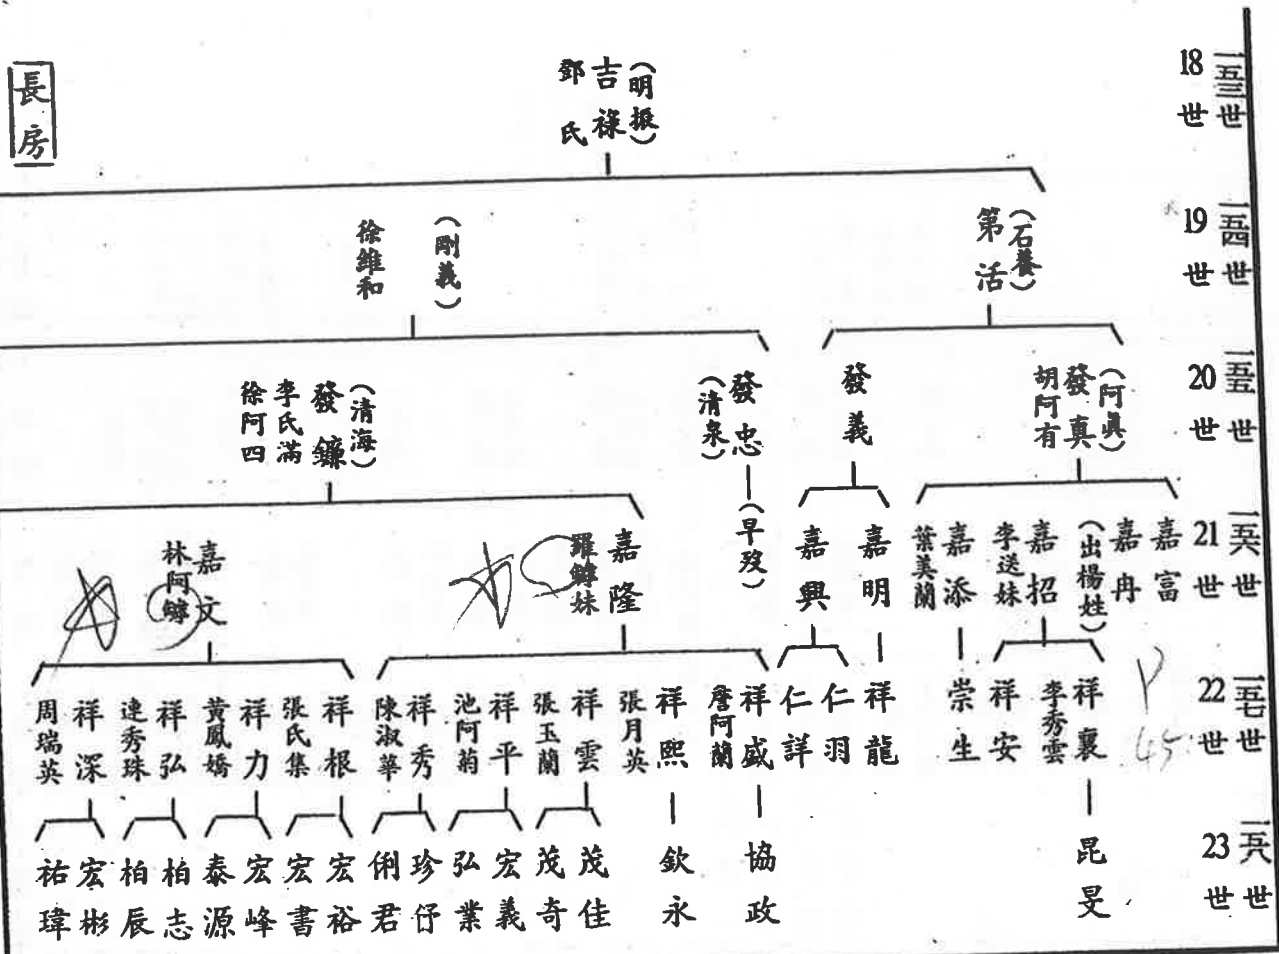 18世
一五三世
(明振)
吉祿
鄧氏
長房
19世
一五四世
(石養)
第活
(剛義)
徐維和
20世
一五五世
(阿眞)
發真
胡阿有
發義
發忠
(清泉)
(清海)
發鐮
李氏滿
徐阿四
21世
一五六世
嘉富
嘉冉
(出楊姓)
嘉招
李送妹
嘉添
葉美蘭
嘉明
嘉興
(早歿)
嘉隆
羅妹
嘉文
林阿
22世
一五七世
祥襄
李秀雲
祥安
崇生
祥龍
仁羽
仁詳
祥盛
詹阿蘭
祥熙
張月英
祥雲
張玉蘭
祥平
池阿菊
祥秀
陳淑華
祥根
張氏集
祥力
黃鳳嬌
祥弘
連秀珠
祥深
周瑞英
45
23世
一五八世
昆旻
協政
欽永
茂佳
茂奇
宏義
弘業
珍伃
俐君
宏裕
宏書
宏峰
泰源
柏志
柏辰
宏彬
祐瑋